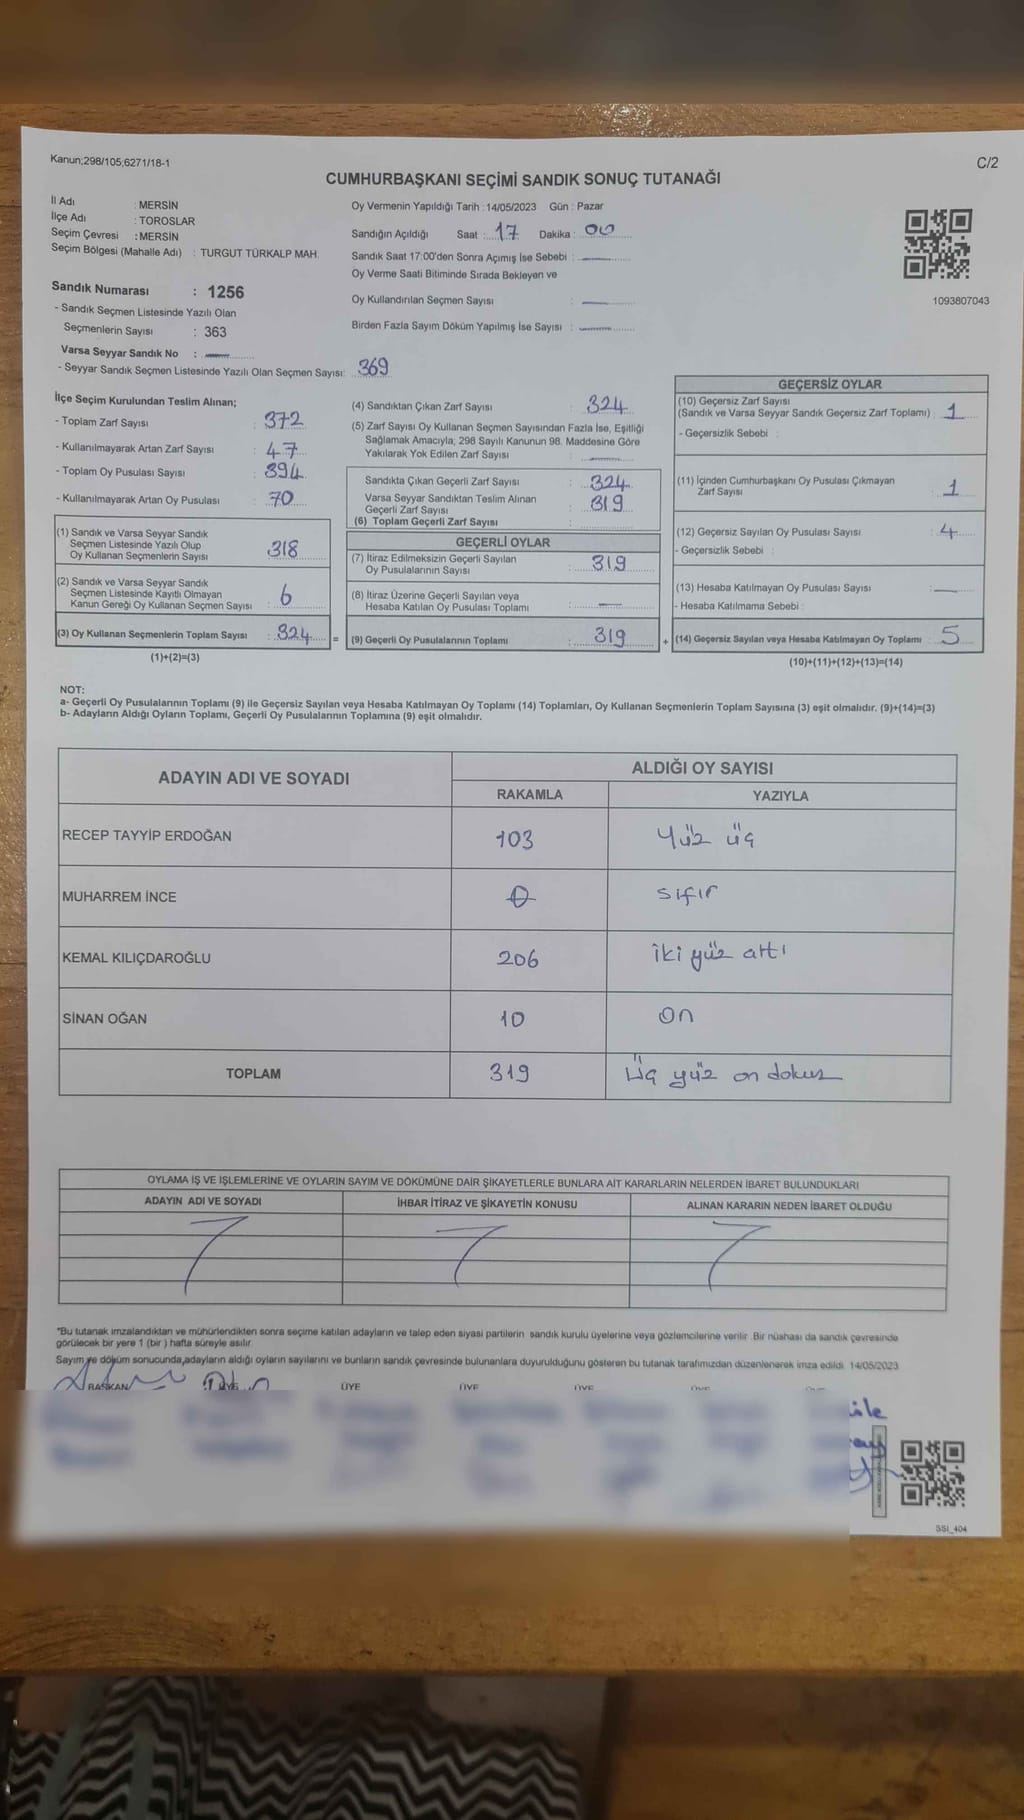 Kanun;298/105,6271/18-1
C/2
CUMHURBAŞKANI SEÇİMİ SANDIK SONUÇ TUTANAĞI
İl Adı : MERSİN
İlçe Adı : TOROSLAR
Seçim Çevresi : MERSİN
Seçim Bölgesi (Mahalle Adı) : TURGUT TÜRKALP MAH.
Sandık Numarası : 1256
- Sandık Seçmen Listesinde Yazılı Olan
Seçmenlerin Sayısı : 363
Varsa Seyyar Sandık No :
- Seyyar Sandık Seçmen Listesinde Yazılı Olan Seçmen Sayısı: 369
Oy Vermenin Yapıldığı Tarih : 14/05/2023 Gün : Pazar
Sandığın Açıldığı Saat : 17 Dakika : 00
Sandık Saat 17:00'den Sonra Açımış İse Sebebi :
Oy Verme Saati Bitiminde Sırada Bekleyen ve
Oy Kullandırılan Seçmen Sayısı :
Birden Fazla Sayım Döküm Yapılmış İse Sayısı :
1093807043
İlçe Seçim Kurulundan Teslim Alınan;
- Toplam Zarf Sayısı : 372
- Kullanılmayarak Artan Zarf Sayısı : 47
- Toplam Oy Pusulası Sayısı : 394
- Kullanılmayarak Artan Oy Pusulası : 70
(1) Sandık ve Varsa Seyyar Sandık
Seçmen Listesinde Yazılı Olup
Oy Kullanan Seçmenlerin Sayısı : 318
(2) Sandık ve Varsa Seyyar Sandık
Seçmen Listesinde Kayıtlı Olmayan
Kanun Gereği Oy Kullanan Seçmen Sayısı : 6
(3) Oy Kullanan Seçmenlerin Toplam Sayısı : 324 =
(1)+(2)=(3)
(4) Sandıktan Çıkan Zarf Sayısı : 324
(5) Zarf Sayısı Oy Kullanan Seçmen Sayısından Fazla İse, Eşitliği
Sağlamak Amacıyla, 298 Sayılı Kanunun 98. Maddesine Göre
Yakılarak Yok Edilen Zarf Sayısı :
Sandıkta Çıkan Geçerli Zarf Sayısı : 324
Varsa Seyyar Sandıktan Teslim Alınan
Geçerli Zarf Sayısı : 319
(6) Toplam Geçerli Zarf Sayısı :
GEÇERLİ OYLAR
(7) İtiraz Edilmeksizin Geçerli Sayılan
Oy Pusulalarının Sayısı : 319
(8) İtiraz Üzerine Geçerli Sayılan veya
Hesaba Katılan Oy Pusulası Toplamı :
(9) Geçerli Oy Pusulalarının Toplamı : 319 +
GEÇERSİZ OYLAR
(10) Geçersiz Zarf Sayısı
(Sandık ve Varsa Seyyar Sandık Geçersiz Zarf Toplamı) : 1
- Geçersizlik Sebebi :
(11) İçinden Cumhurbaşkanı Oy Pusulası Çıkmayan
Zarf Sayısı : 1
(12) Geçersiz Sayılan Oy Pusulası Sayısı : 4
- Geçersizlik Sebebi :
(13) Hesaba Katılmayan Oy Pusulası Sayısı :
- Hesaba Katılmama Sebebi :
(14) Geçersiz Sayılan veya Hesaba Katılmayan Oy Toplamı : 5
(10)+(11)+(12)+(13)=(14)
NOT:
a- Geçerli Oy Pusulalarının Toplamı (9) ile Geçersiz Sayılan veya Hesaba Katılmayan Oy Toplamı (14) Toplamları, Oy Kullanan Seçmenlerin Toplam Sayısına (3) eşit olmalıdır. (9)+(14)=(3)
b- Adayların Aldığı Oyların Toplamı, Geçerli Oy Pusulalarının Toplamına (9) eşit olmalıdır.
ADAYIN ADI VE SOYADI ALDIĞI OY SAYISI
RAKAMLA YAZIYLA
RECEP TAYYİP ERDOĞAN 103 Yüz üç
MUHARREM İNCE 0 sıfır
KEMAL KILIÇDAROĞLU 206 iki yüz altı
SİNAN OĞAN 10 On
TOPLAM 319 Üç yüz on dokuz
OYLAMA İŞ VE İŞLEMLERİNE VE OYLARIN SAYIM VE DÖKÜMÜNE DAİR ŞİKAYETLERLE BUNLARA AİT KARARLARIN NELERDEN İBARET BULUNDUKLARI
ADAYIN ADI VE SOYADI İHBAR İTİRAZ VE ŞİKAYETİN KONUSU ALINAN KARARIN NEDEN İBARET OLDUĞU
*Bu tutanak imzalandıktan ve mühürlendikten sonra seçime katılan adayların ve talep eden siyasi partilerin sandık kurulu üyelerine veya gözlemcilerine verilir .Bir nüshası da sandık çevresinde
görülecek bir yere 1 (bir ) hafta süreyle asılır.
Sayım ve döküm sonucunda,adayların aldığı oyların sayılarını ve bunların sandık çevresinde bulunanlara duyurulduğunu gösteren bu tutanak tarafımızdan düzenlenerek imza edildi. 14/05/2023
BAŞKAN ÜYE ÜYE ÜYE ÜYE
SSI_404